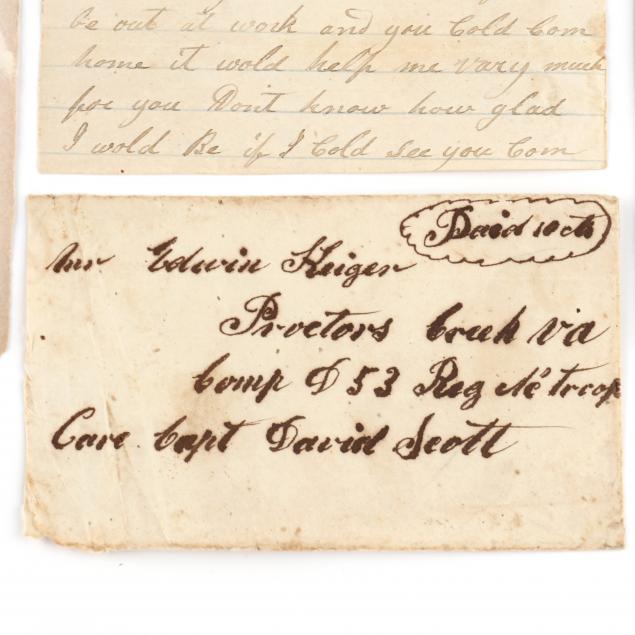 be out at work and you Cold Com
home it wold help me vary much
for you Dont know how glad
I wold Be if I Cold see you Com
Paid 10 cts
Mr Edwin Keiger
Proctors Creek Va
Comp D 53 Reg Nc troop
Care Capt David Scott